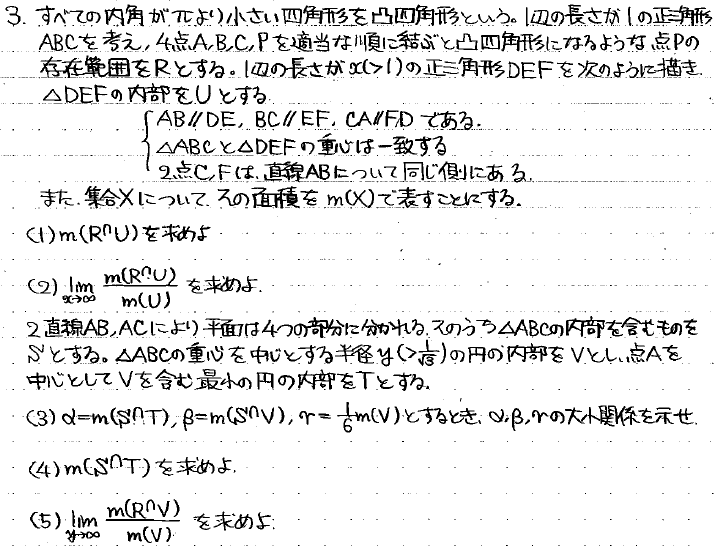 3. すべての内角がπより小さい四角形を凸四角形という。1辺の長さが1の正三角形
ABCを考え, 4点A,B,C,Pを適当な順に結ぶと凸四角形になるような点Pの
存在範囲をRとする。1辺の長さがx(>1)の正三角形DEFを次のように描き
△DEFの内部をUとする
AB//DE, BC//EF, CA//FD である.
△ABCと△DEFの重心は一致する
2点C,Fは、直線ABについて同じ側にある.
また. 集合Xについて その面積を m(X)で表すことにする.
(1) m(R∩U)を求めよ
(2) lim x→∞ m(R∩U)/m(U) を求めよ.
2直線AB, ACにより平面は4つの部分に分かれる. そのうち△ABCの内部を含むものを
Sとする。△ABCの重心を中心とする半径y(>1/√3)の円の内部をVとし、点Aを
中心としてVを含む最小の円の内部をTとする.
(3) α=m(S∩T), β=m(S∩V), γ=1/6 m(V)とするとき、α,β,γの大小関係を示せ.
(4) m(S∩T)を求めよ.
(5) lim y→∞ m(R∩V)/m(V) を求めよ.